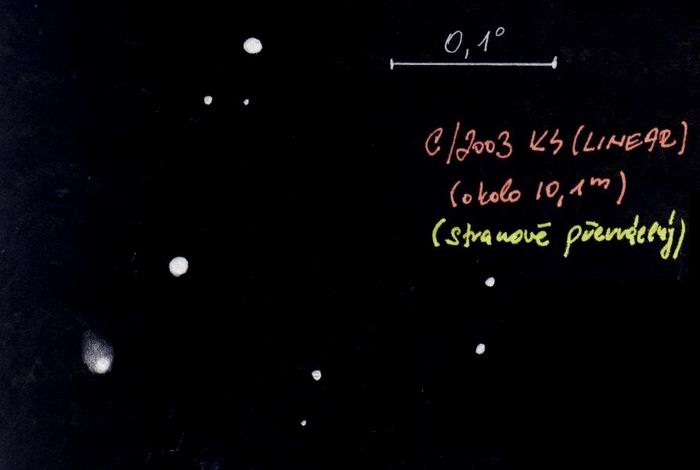 0,1°
C/2003 K4 (LINEAR)
(okolo 10,1m)
(stranově převrácený)